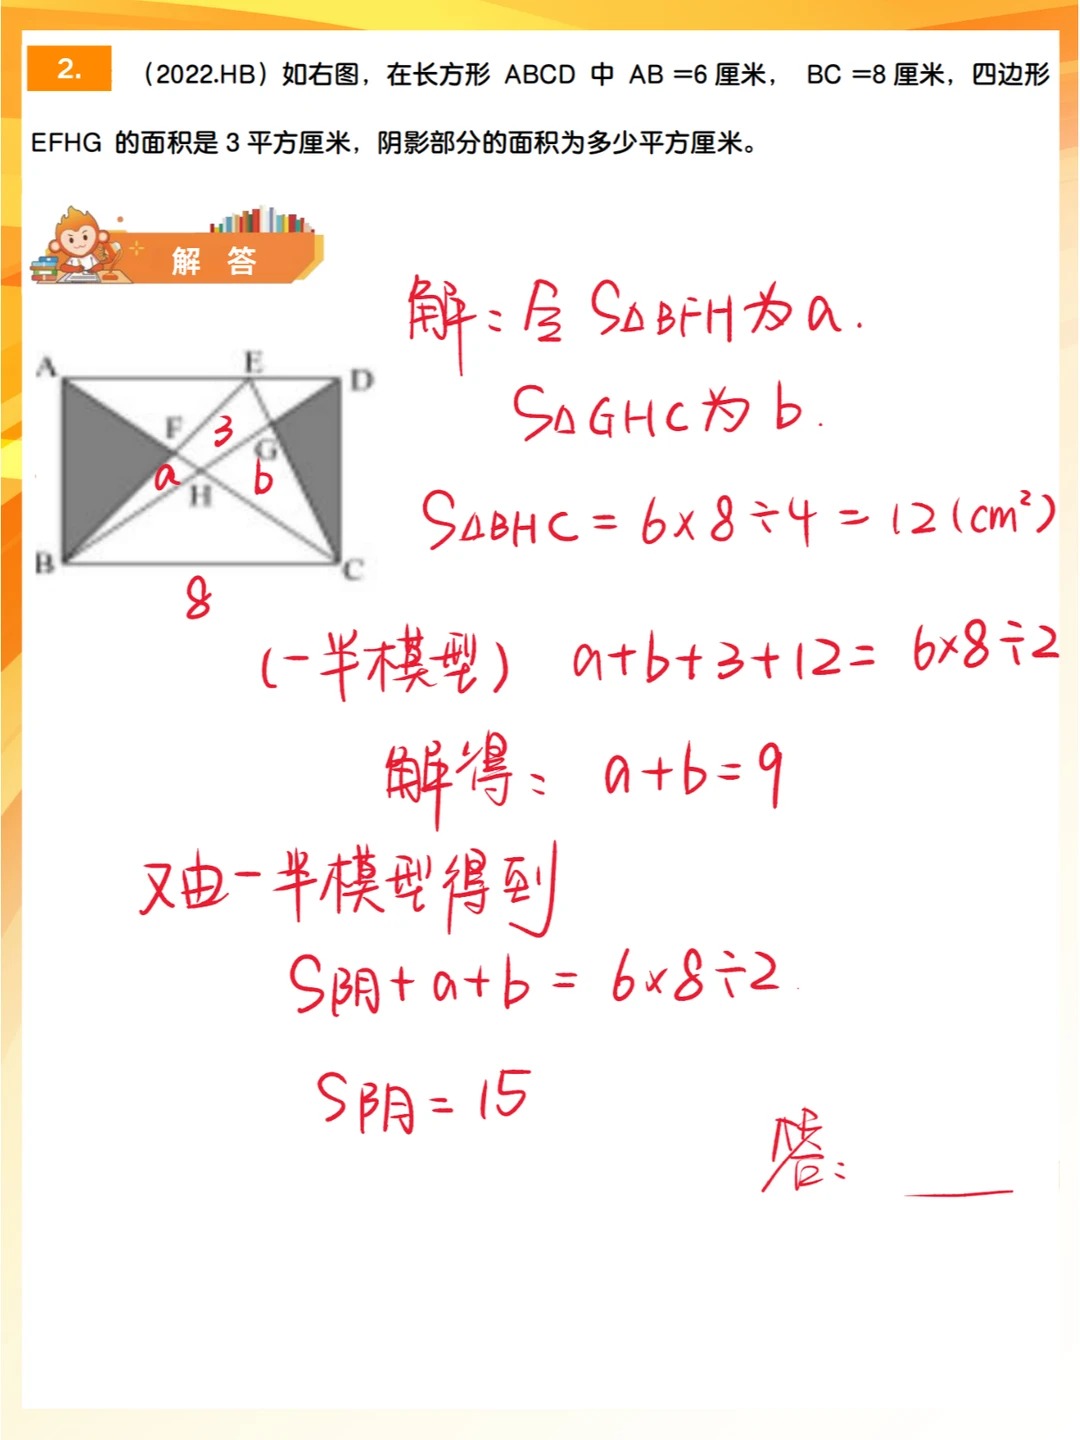 2. （2022.HB）如右图，在长方形 ABCD 中 AB =6 厘米， BC =8 厘米，四边形
EFHG 的面积是 3 平方厘米，阴影部分的面积为多少平方厘米。
解 答
解：令 S△BFH为a.
S△GHC为 b.
A E D
F 3 G
a H b
B C
8
S△BHC = 6×8÷4 = 12(cm²)
(一半模型) a+b+3+12= 6×8÷2
解得： a+b=9
又由一半模型得到
S阴+a+b = 6×8÷2
S阴=15
答：